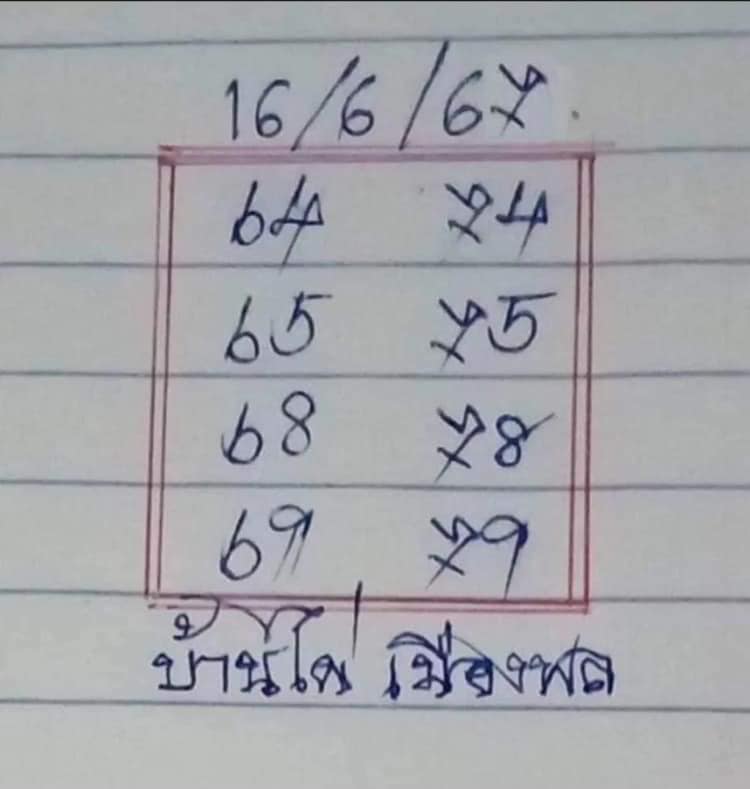 16/6/67
64 74
65 75
68 78
69 79
บ้านไผ่ เมืองพล